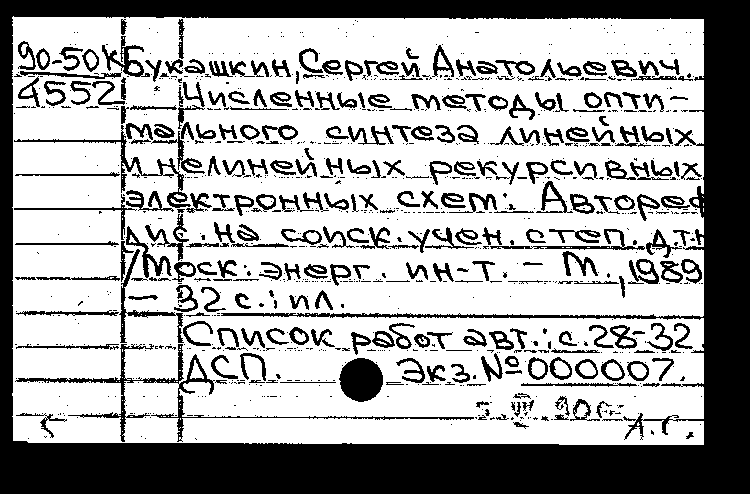 90-50к Букашкин, Сергей Анатольевич.
4552 Численные методы опти-
мального синтеза линейных
и нелинейных рекурсивных
электронных схем: Автореф
дис. на соиск. учен. степ. д.т.н
/Моск. энерг. ин-т. - М., 1989
— 32 с.: ил.
Список работ авт.: с. 28-32.
ДСП. Экз. № 000007.
5 А.С.